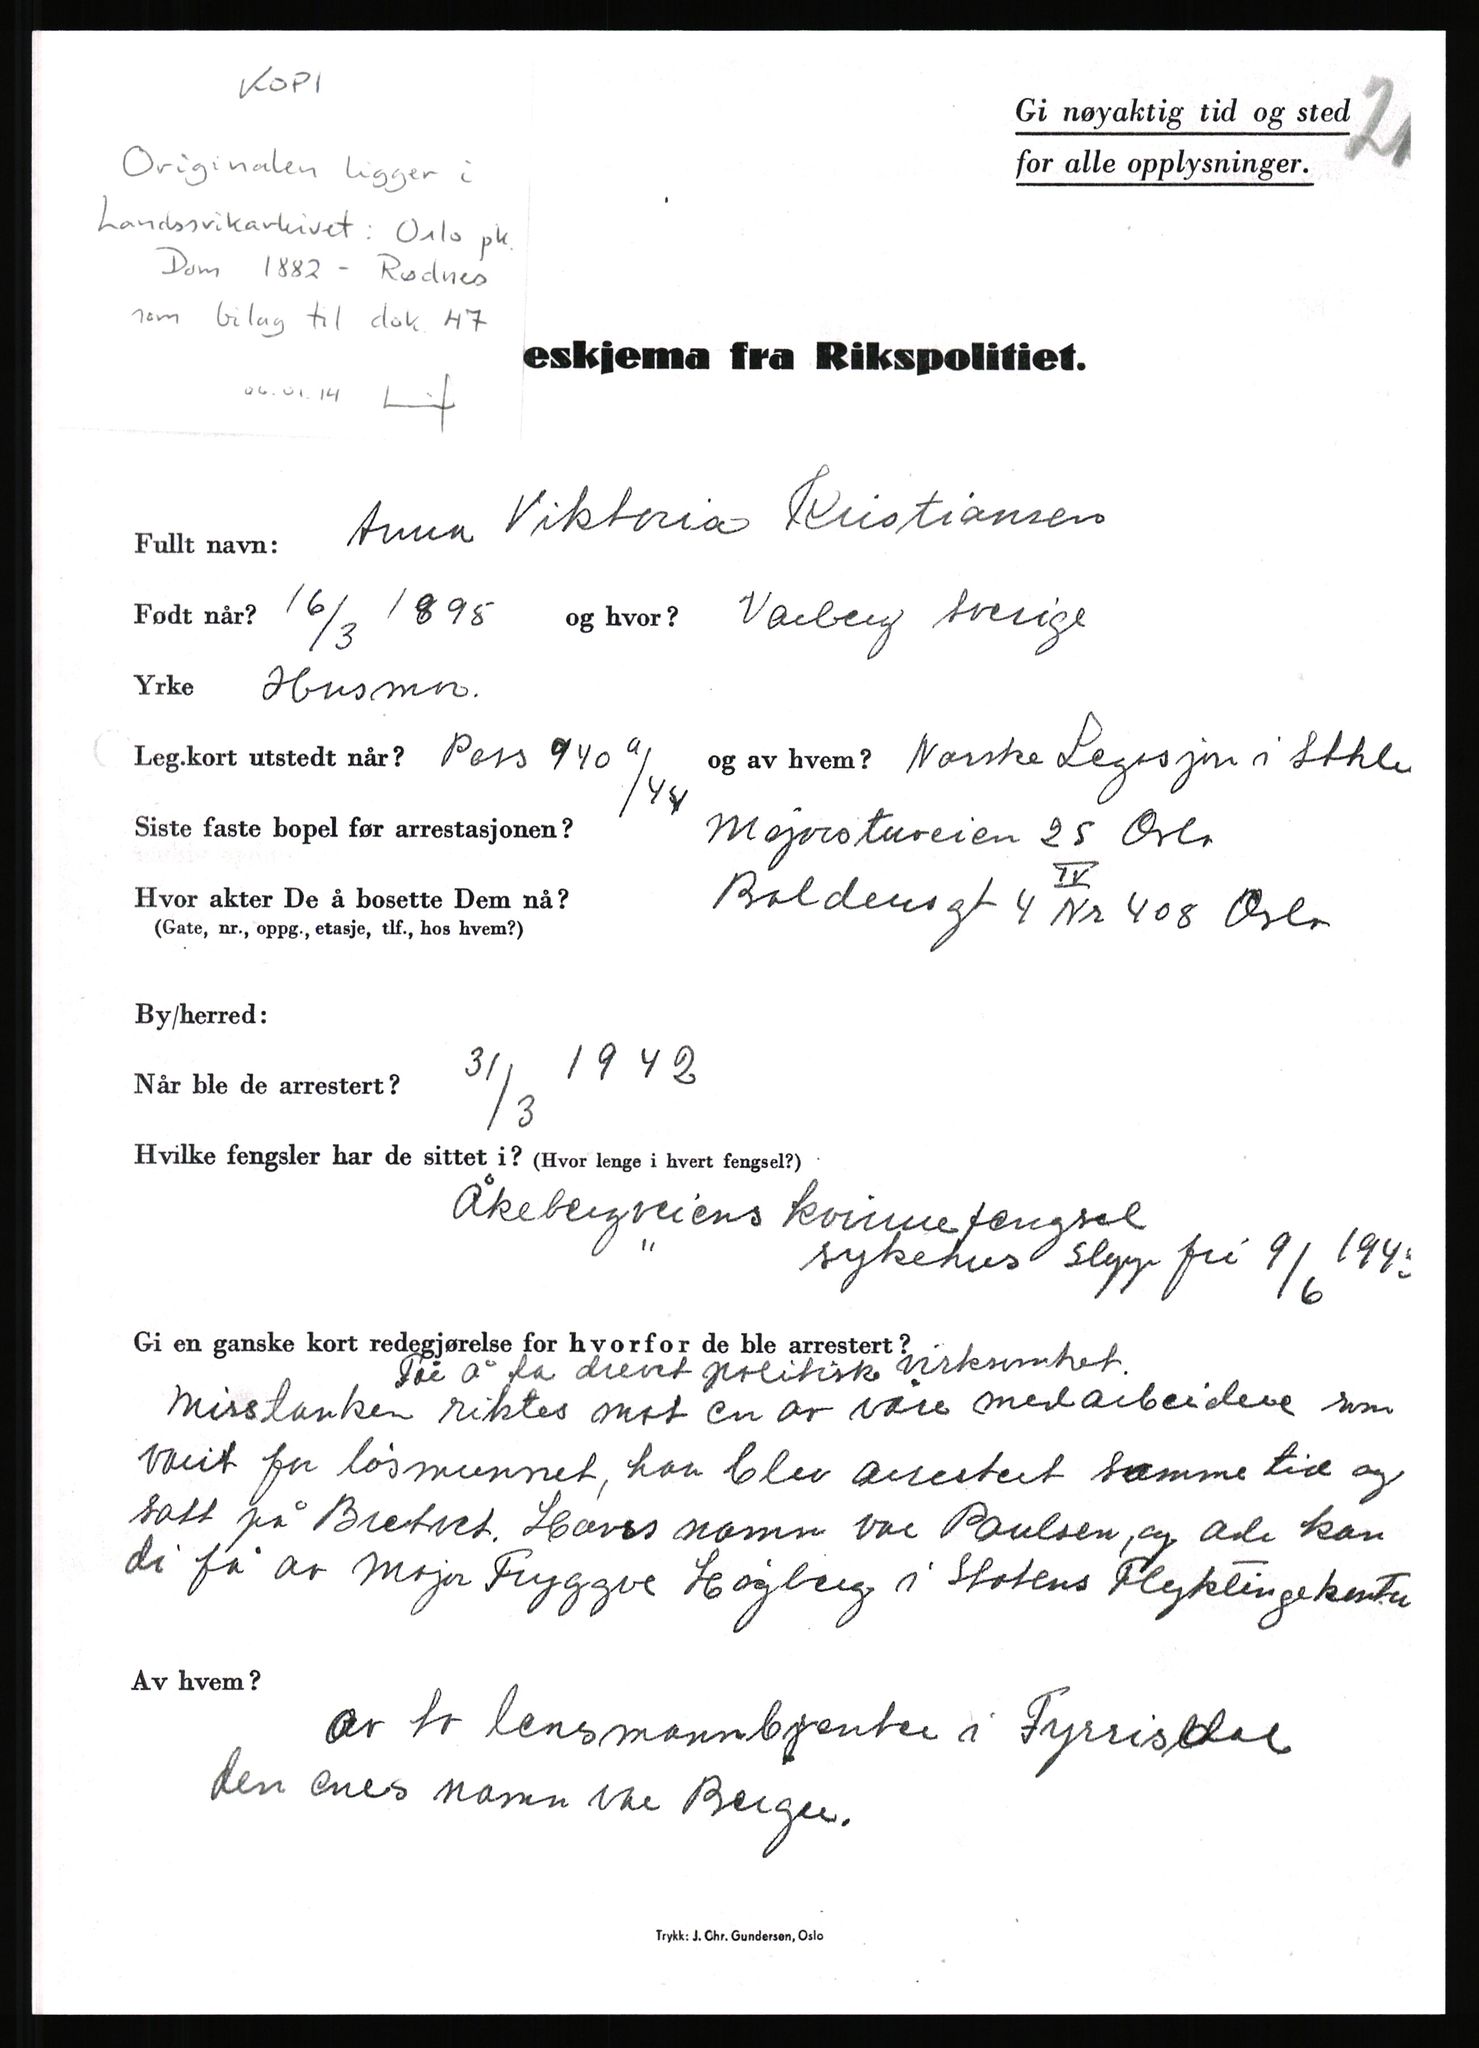 KOPI
Originalen ligger i
Landssvikarkivet: Oslo pk.
Dom 1882 - Rødnes
som bilag til dok 47
06.01.14
Gi nøyaktig tid og sted
for alle opplysninger.
2
eskjema fra Rikspolitiet.
Fullt navn: Anna Viktoria Kristiansen
Født når? 16/3 1895 og hvor? Varberg Sverige
Yrke Husmor.
Leg.kort utstedt når? Pass 940 a/44 og av hvem? Norske Legasjon i Sthlm
Siste faste bopel før arrestasjonen? Majorstuveien 25 Oslo
Hvor akter De å bosette Dem nå? Boldensgt 4 IV Nr 408 Oslo
(Gate, nr., oppg., etasje, tlf., hos hvem?)
By/herred:
Når ble de arrestert? 31/3 1942
Hvilke fengsler har de sittet i? (Hvor lenge i hvert fengsel?)
Åkebergveiens kvinnefengsel
" sykehus Slapp fri 9/6 194
Gi en ganske kort redegjørelse for hvorfor de ble arrestert?
For å ha drevet politisk virksomhet.
Misstanken riktes mot en av våre medarbeidere som
varit for løsmunnet, han blev arrestert samme tid og
satt på Bretvet. Hans namn var Paulsen, og adr kan
di få av Major Tryggve Høgberg i Statens Flyktingekontor
Av hvem?
av to lensmannbetjenter i Fyrrisdal
den enes namn var Berger.
Trykk: J. Chr. Gundersen, Oslo